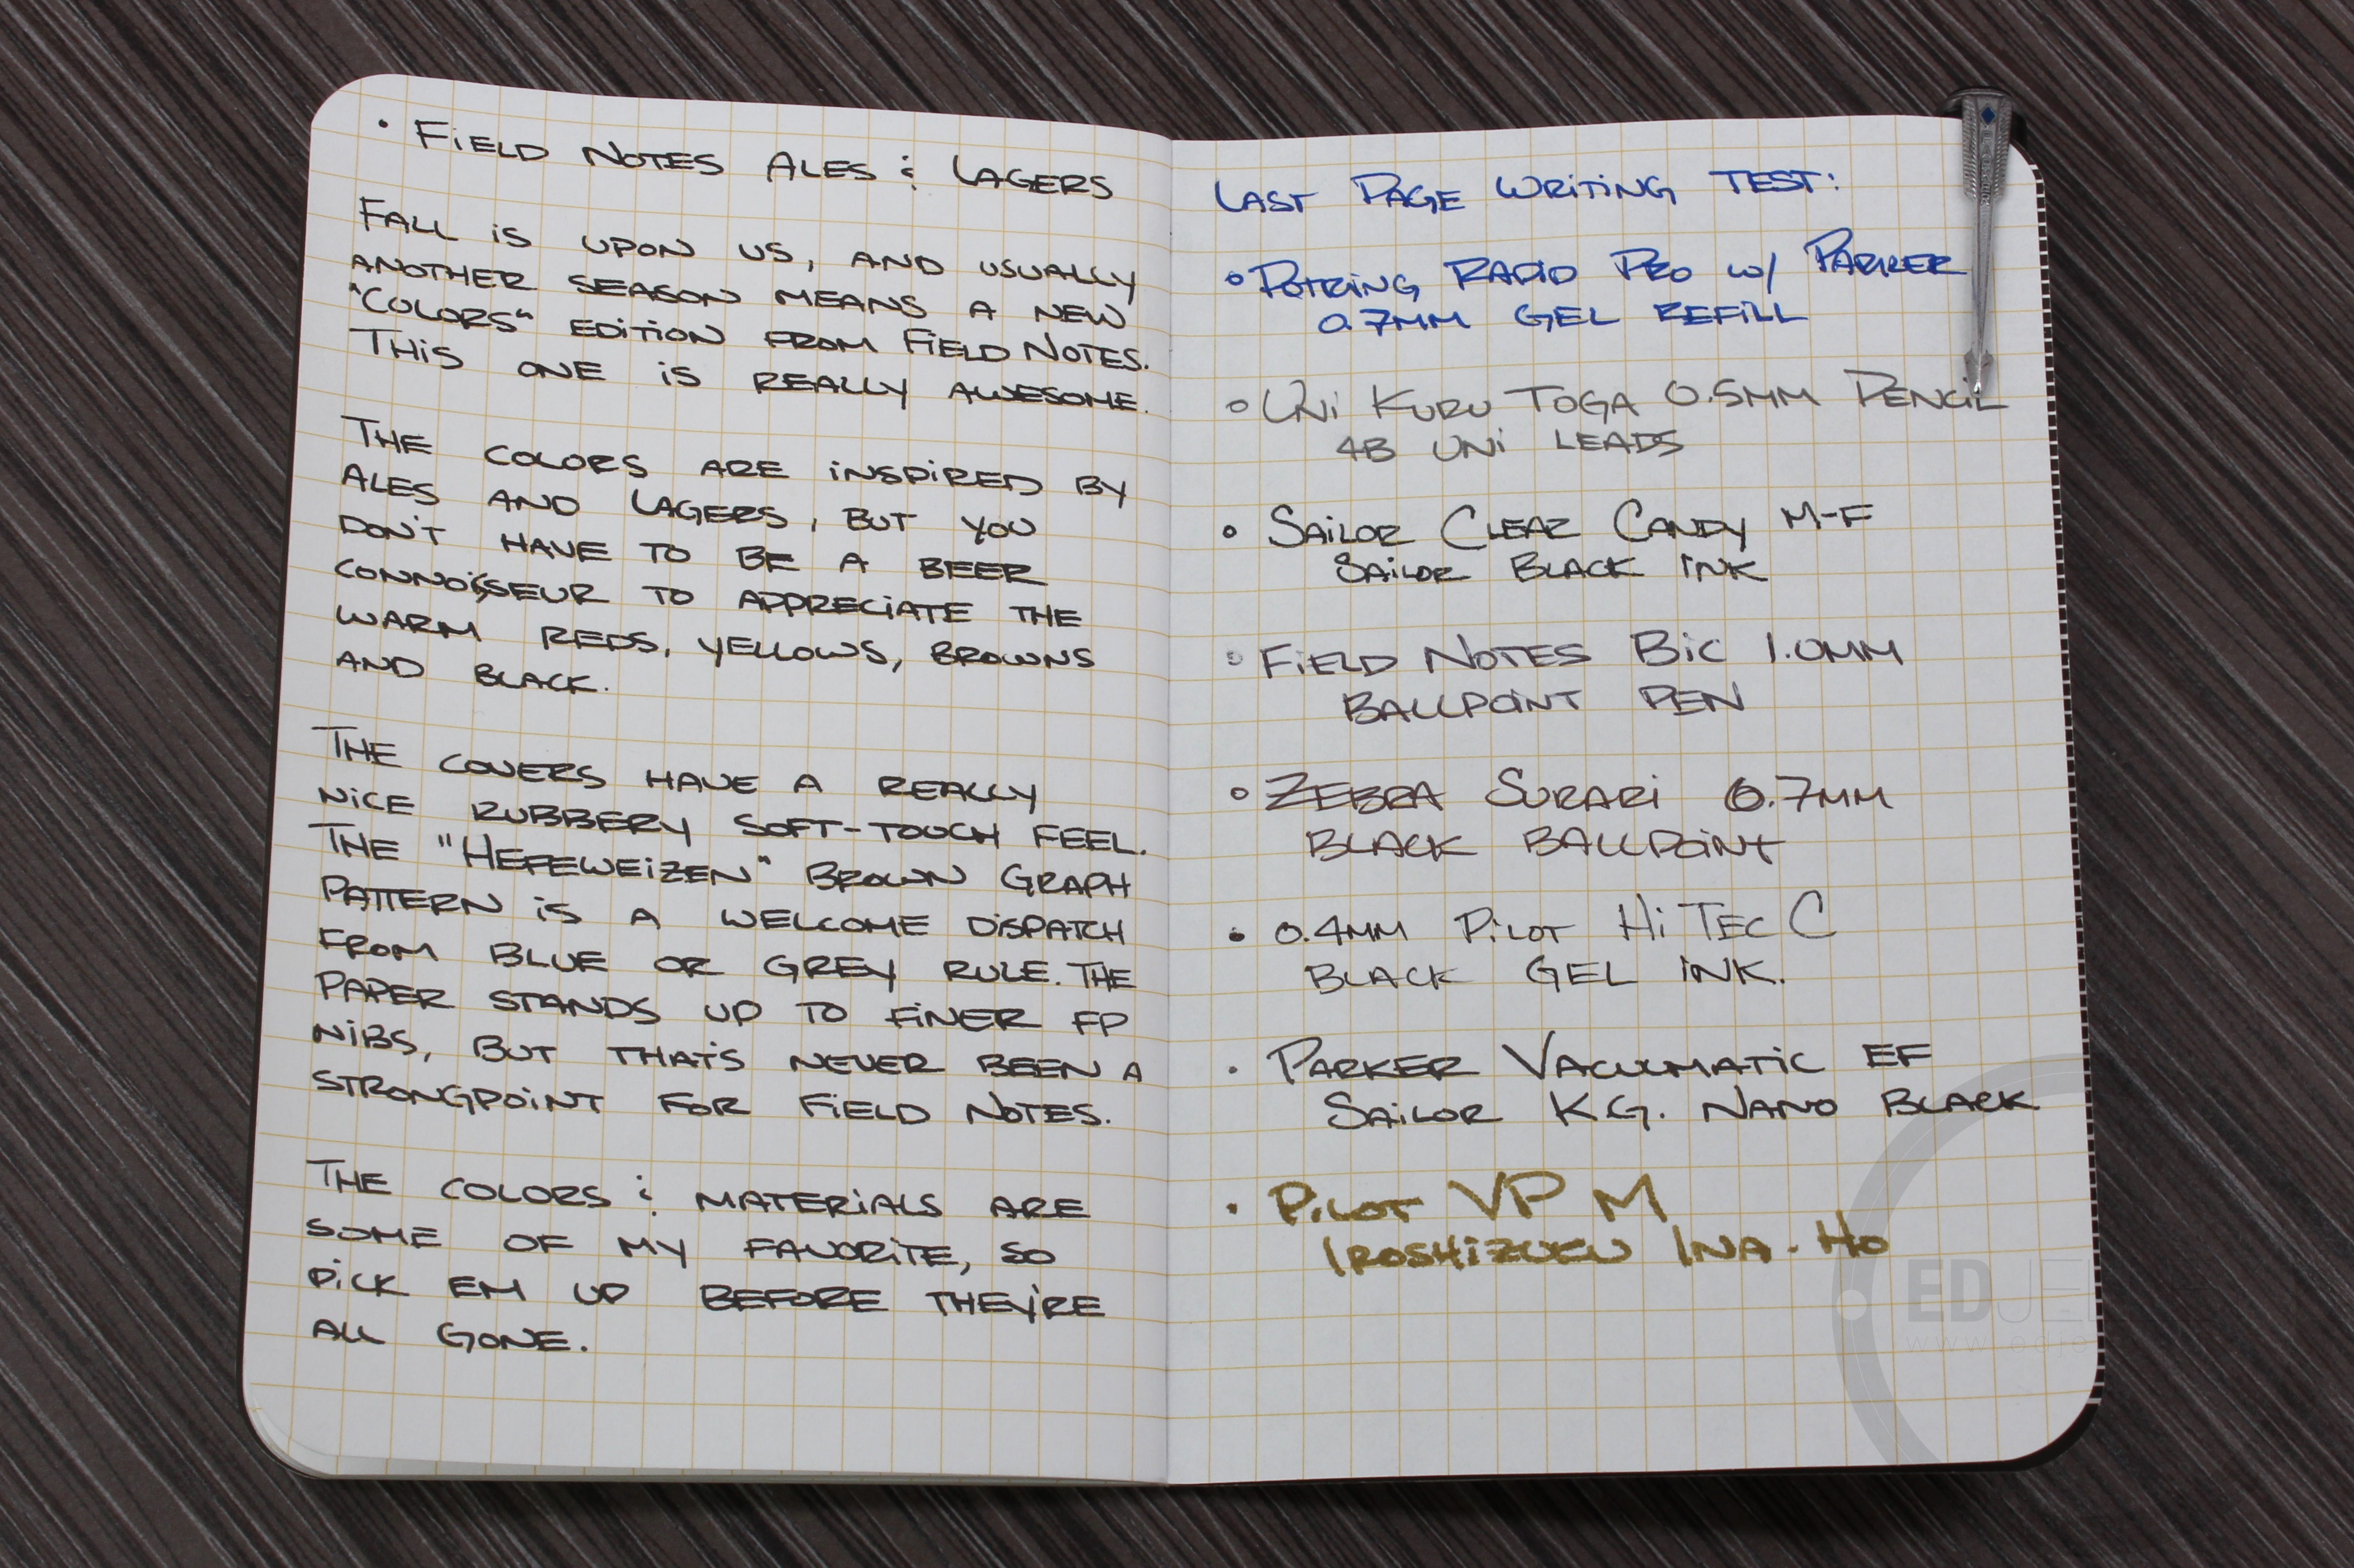 • FiELD NOTES ALES & LAGERS
FALL iS UPON US, AND USUALLY
ANOTHER SEASON MEANS A NEW
"COLORS" EDiTiON FROM FiELD NOTES.
THiS ONE iS REALLY AWESOME.
THE COLORS ARE iNSPiRED BY
ALES AND LAGERS, BUT YOU
DON'T HAVE TO BE A BEER
CONNOiSSEUR TO APPRECiATE THE
WARM REDS, YELLOWS, BROWNS
AND BLACK.
THE COVERS HAVE A REALLY
NiCE RUBBERY SOFT-TOUCH FEEL.
THE "HEFEWEiZEN" BROWN GRAPH
PATTERN iS A WELCOME DiSPATCH
FROM BLUE OR GREY RULE. THE
PAPER STANDS UP TO FiNER FP
NiBS, BUT THAT'S NEVER BEEN A
STRONGPOiNT FOR FiELD NOTES.
THE COLORS & MATERiALS ARE
SOME OF MY FAVORiTE, SO
PiCK EM UP BEFORE THEY'RE
ALL GONE.
LAST PAGE WRiTiNG TEST:
• ROTRiNG RAPiD PRO W/ PARKER
0.7MM GEL REFiLL
• UNi KURU TOGA 0.5MM PENCiL
4B UNi LEADS
• SAiLOR CLEAR CANDY M-F
SAiLOR BLACK iNK
• FiELD NOTES BiC 1.0MM
BALLPOiNT PEN
• ZEBRA SURARi 0.7MM
BLACK BALLPOiNT
• 0.4MM PiLOT Hi TEC C
BLACK GEL iNK.
• PARKER VACUUMATiC EF
SAiLOR K.G. NANO BLACK
• PiLOT VP M
IROSHiZUKU INA-HO
EDJE
www.edje